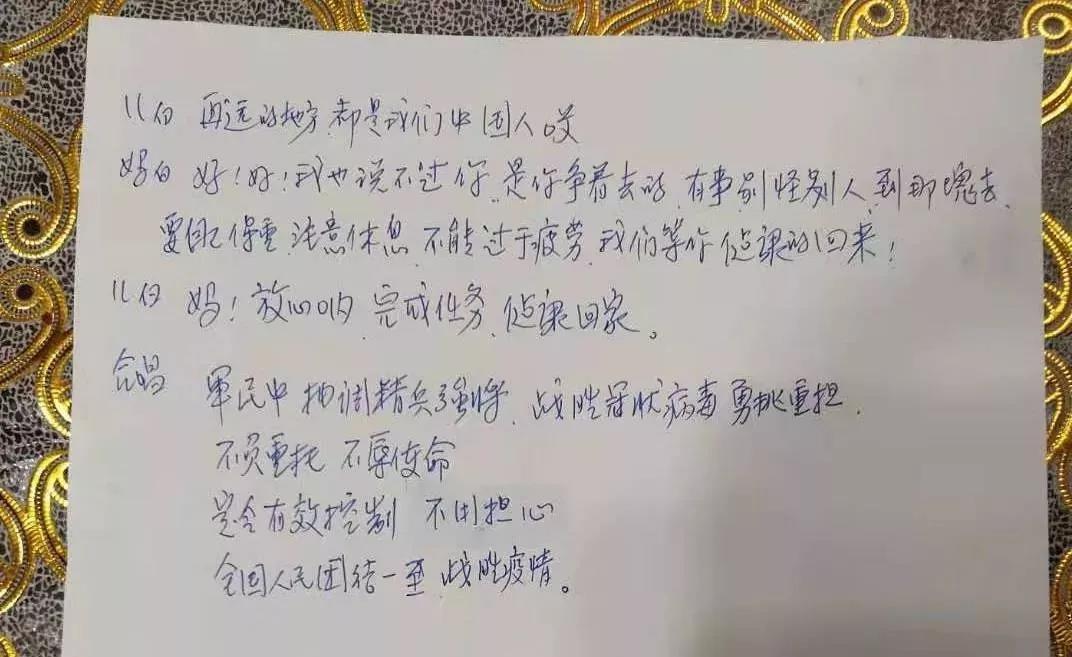 儿白 再远的地方 都是我们中国人哎
妈白 好！好！我也说不过你，是你争着去的，有事别怪别人，到那块去，
要自己保重，注意休息，不能过于疲劳，我们等你健康的回来！
儿白 妈！放心呐，完成任务，健康回家。
合唱 军民中抽调精兵强将，战胜冠状病毒勇挑重担，
不负重托 不辱使命
是会有效控制 不用担心
全国人民团结一至，战胜疫情。